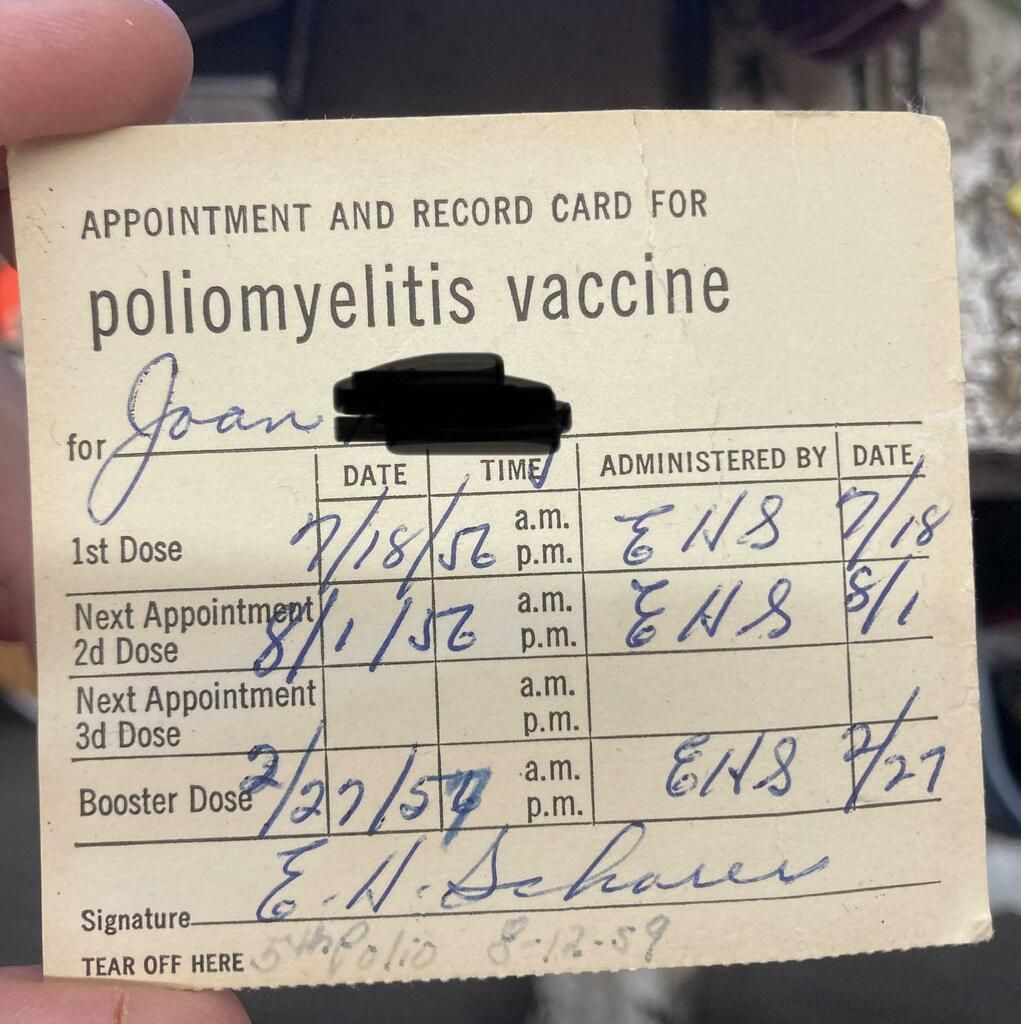 APPOINTMENT AND RECORD CARD FOR
poliomyelitis vaccine
for Joan
DATE TIME ADMINISTERED BY DATE
1st Dose 7/18/56 a.m. p.m. EHS 7/18
Next Appointment 2d Dose 8/1/56 a.m. p.m. EHS 8/1
Next Appointment 3d Dose a.m. p.m.
Booster Dose 2/27/57 a.m. p.m. EHS 2/27
Signature E. H.
TEAR OFF HERE 5th Polio 8-12-59